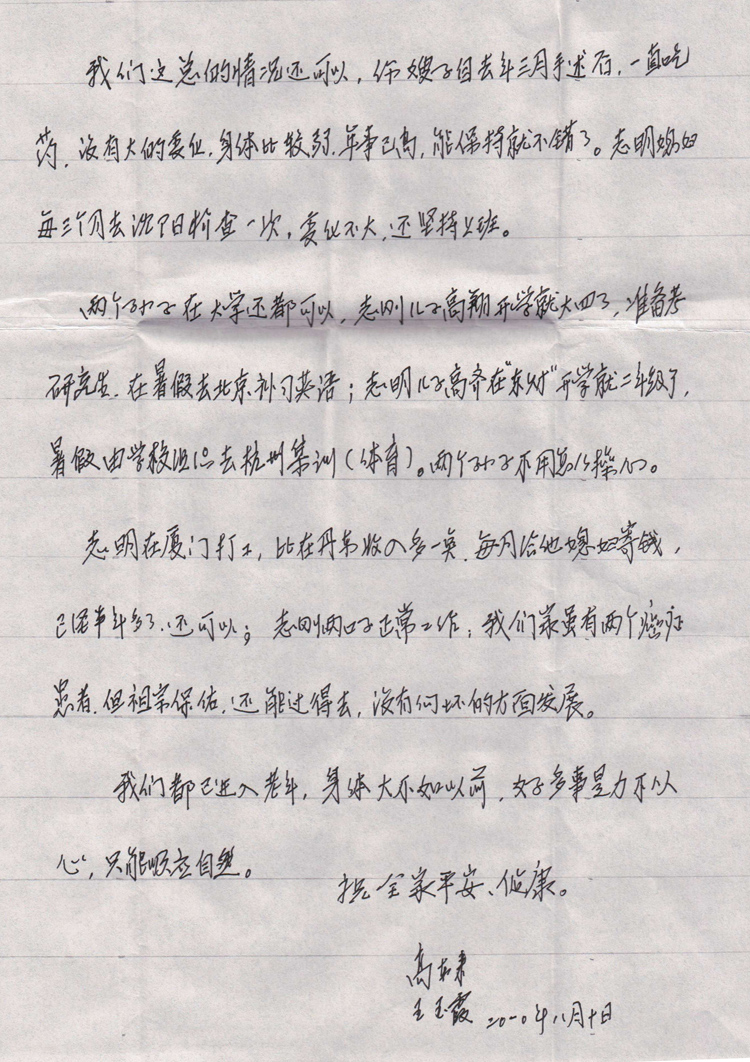 我们这总的情况还可以，你嫂子自去年三月手术后，一直吃
药，没有大的变化，身体比较弱，年事已高，能保持就不错了。志明媳妇
每三个月去沈阳检查一次，变化不大，还坚持上班。
两个孙子在大学还都可以，志刚儿子高翔开学就大四了，准备考
研究生，在暑假去北京补习英语；志明儿子高齐在"东财"开学就二年级了，
暑假由学校组织去杭州集训（体育）。两个孙子不用怎么操心。
志明在厦门打工，比在丹东收入多一些，每月给他媳妇寄钱，
已有半年多了，还可以；志刚两口子正常工作；我们家虽有两个癌症
患者，但祖宗保佑，还能过得去，没有何坏的方面发展。
我们都已进入老年，身体大不如以前，好多事是力不从
心，只能顺应自然。
祝全家平安、健康。
高
王玉霞 二〇一〇年八月十日